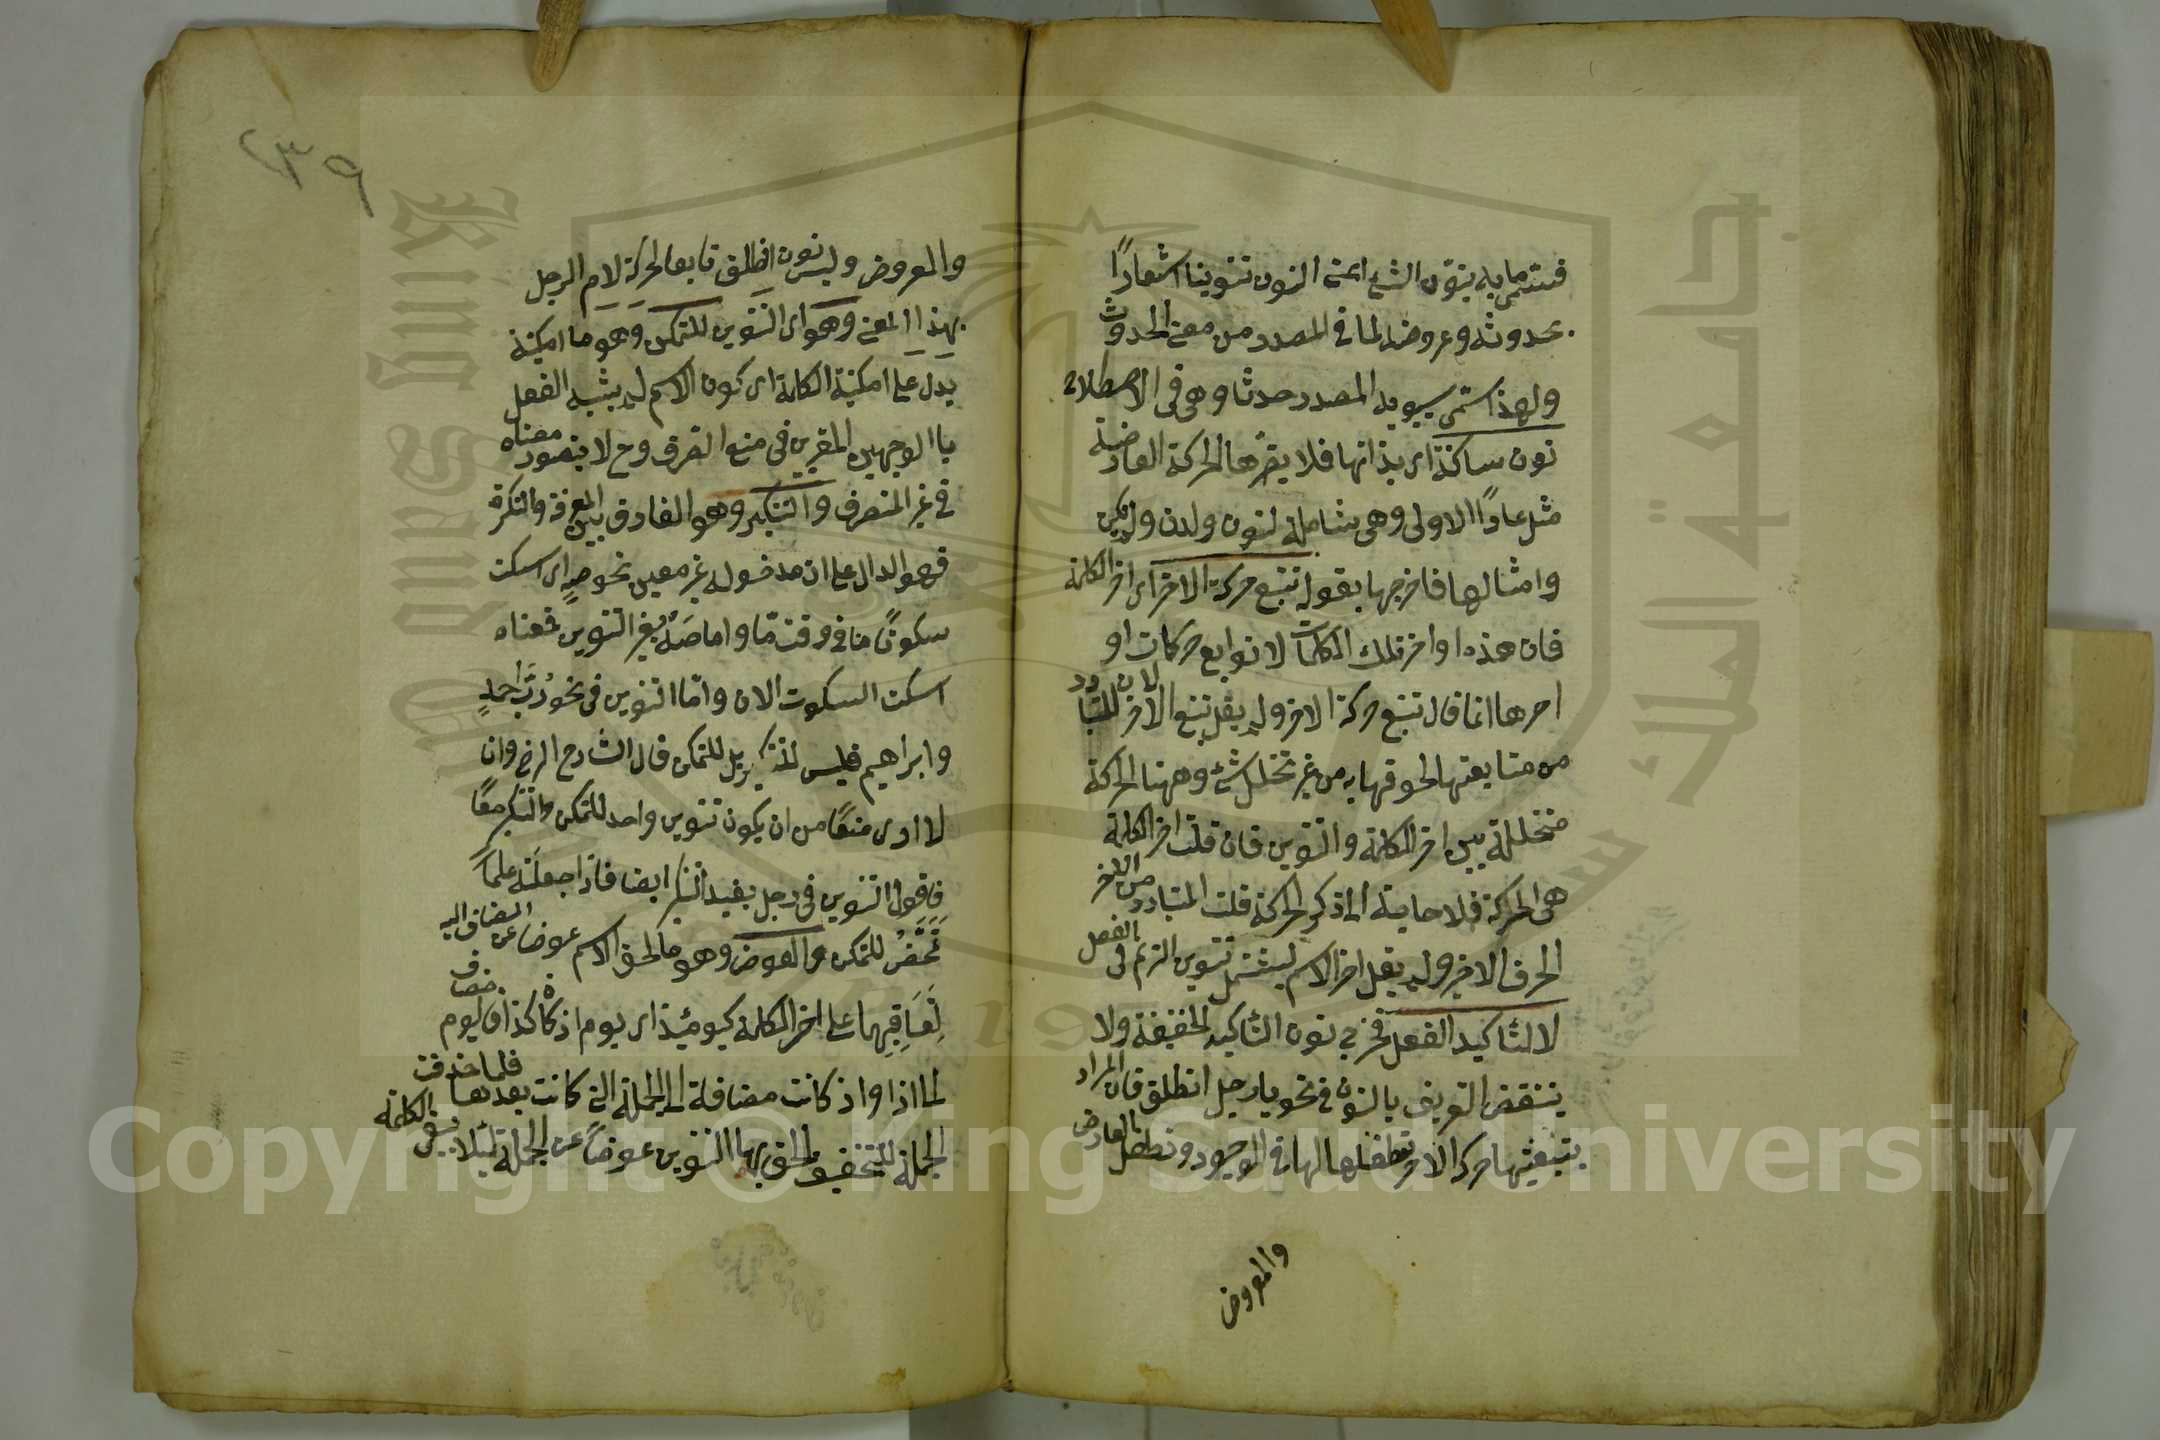 فسمى ما به ينون الشئ اعنى النون تنوينا اشعارًا
بحدوثه وعروضه لما فى المصدر من معنى الحدوث
ولهذا سمى سيبويه المصدر حدثا وهى فى الاصطلاح
نون ساكنة اى بذاتها فلا يضرها الحركة العارضية
مثل عادًا الاولى وهى شاملة لنون ولدن ولم يكن
وامثالها فاخرجها بقوله تتبع حركة الاخر اى اخر الكلمة
فان هذه اواخر تلك الكلمات لا توابع حركات او
اخرها انما قال تتبع حركة الاخر ولم يقل تتبع الاخر لان المتبادر
من متابعتها لحوقها به من غير تخلل شئ وههنا الحركة
متخللة بين اخر الكلمة والتنوين فان قلت اخر الكلمة
هى الحركة فلا حاجة الى ذكر الحركة قلت المتبادر من الاخر
الحرف الاخير ولم يقل اخر الاسم ليشتمل تنوين الترنم فى الفعل
لا لتاكيد الفعل فخرج نون التاكيد الخفيفة ولا
ينتقض التعريف بالنون فى نحو يا رجل انطلق فان المراد
بتبعيتها حركة الاخر تطفلها لها فى الوجود وتطفل العارض
والمعروض
٣٩
والمعروض وليس نون انطلق تابعا لحركة لام الرجل
بهذا المعنى وهو اى التنوين للتمكن وهو ما امكنية
يدل على امكنية الكلمة اى كون الاسم لم يشبه الفعل
باالوجهين المعتبرين فى منع الصرف وح لا يتصور معناه
فى غير المنصرف والتنكير وهو الفارق بين المعرفة والنكرة
فهو الدال على ان مدخوله غير معين نحو صهٍ اى اسكت
سكوتًا ما فى وقت ما واما صَهْ بغير التنوين فمعناه
اسكت السكوت الان واما التنوين فى نحو رُبَّ احمدٍ
وابراهيم فليس للتنكير بل للتمكن قال الشارح الرضى وانا
لا ارى منعًا من ان يكون تنوين واحد للتمكن والتنكير معًا
فاقول التنوين فى رجل يفيد التنكير ايضا فاذا جعلته علمًا
تمحّضَتْ للتمكن والعوض وهو ما لحق الاسم عوضا عن المضاف اليه
لِتَعَاقُبِهما على اخر الكلمة كيومئذ اى يوم اذ كان كذا فاليوم مضاف
لما اذا واذ كانت مضافة الى الجملة التى كانت بعدها فلما حذفت
الجملة للتخفيف لحق بها التنوين عوضًا عن الجملة لئلا يبقى الكلمة
Copyright © King Saud University
جامعة الملك سعود
King Saud University